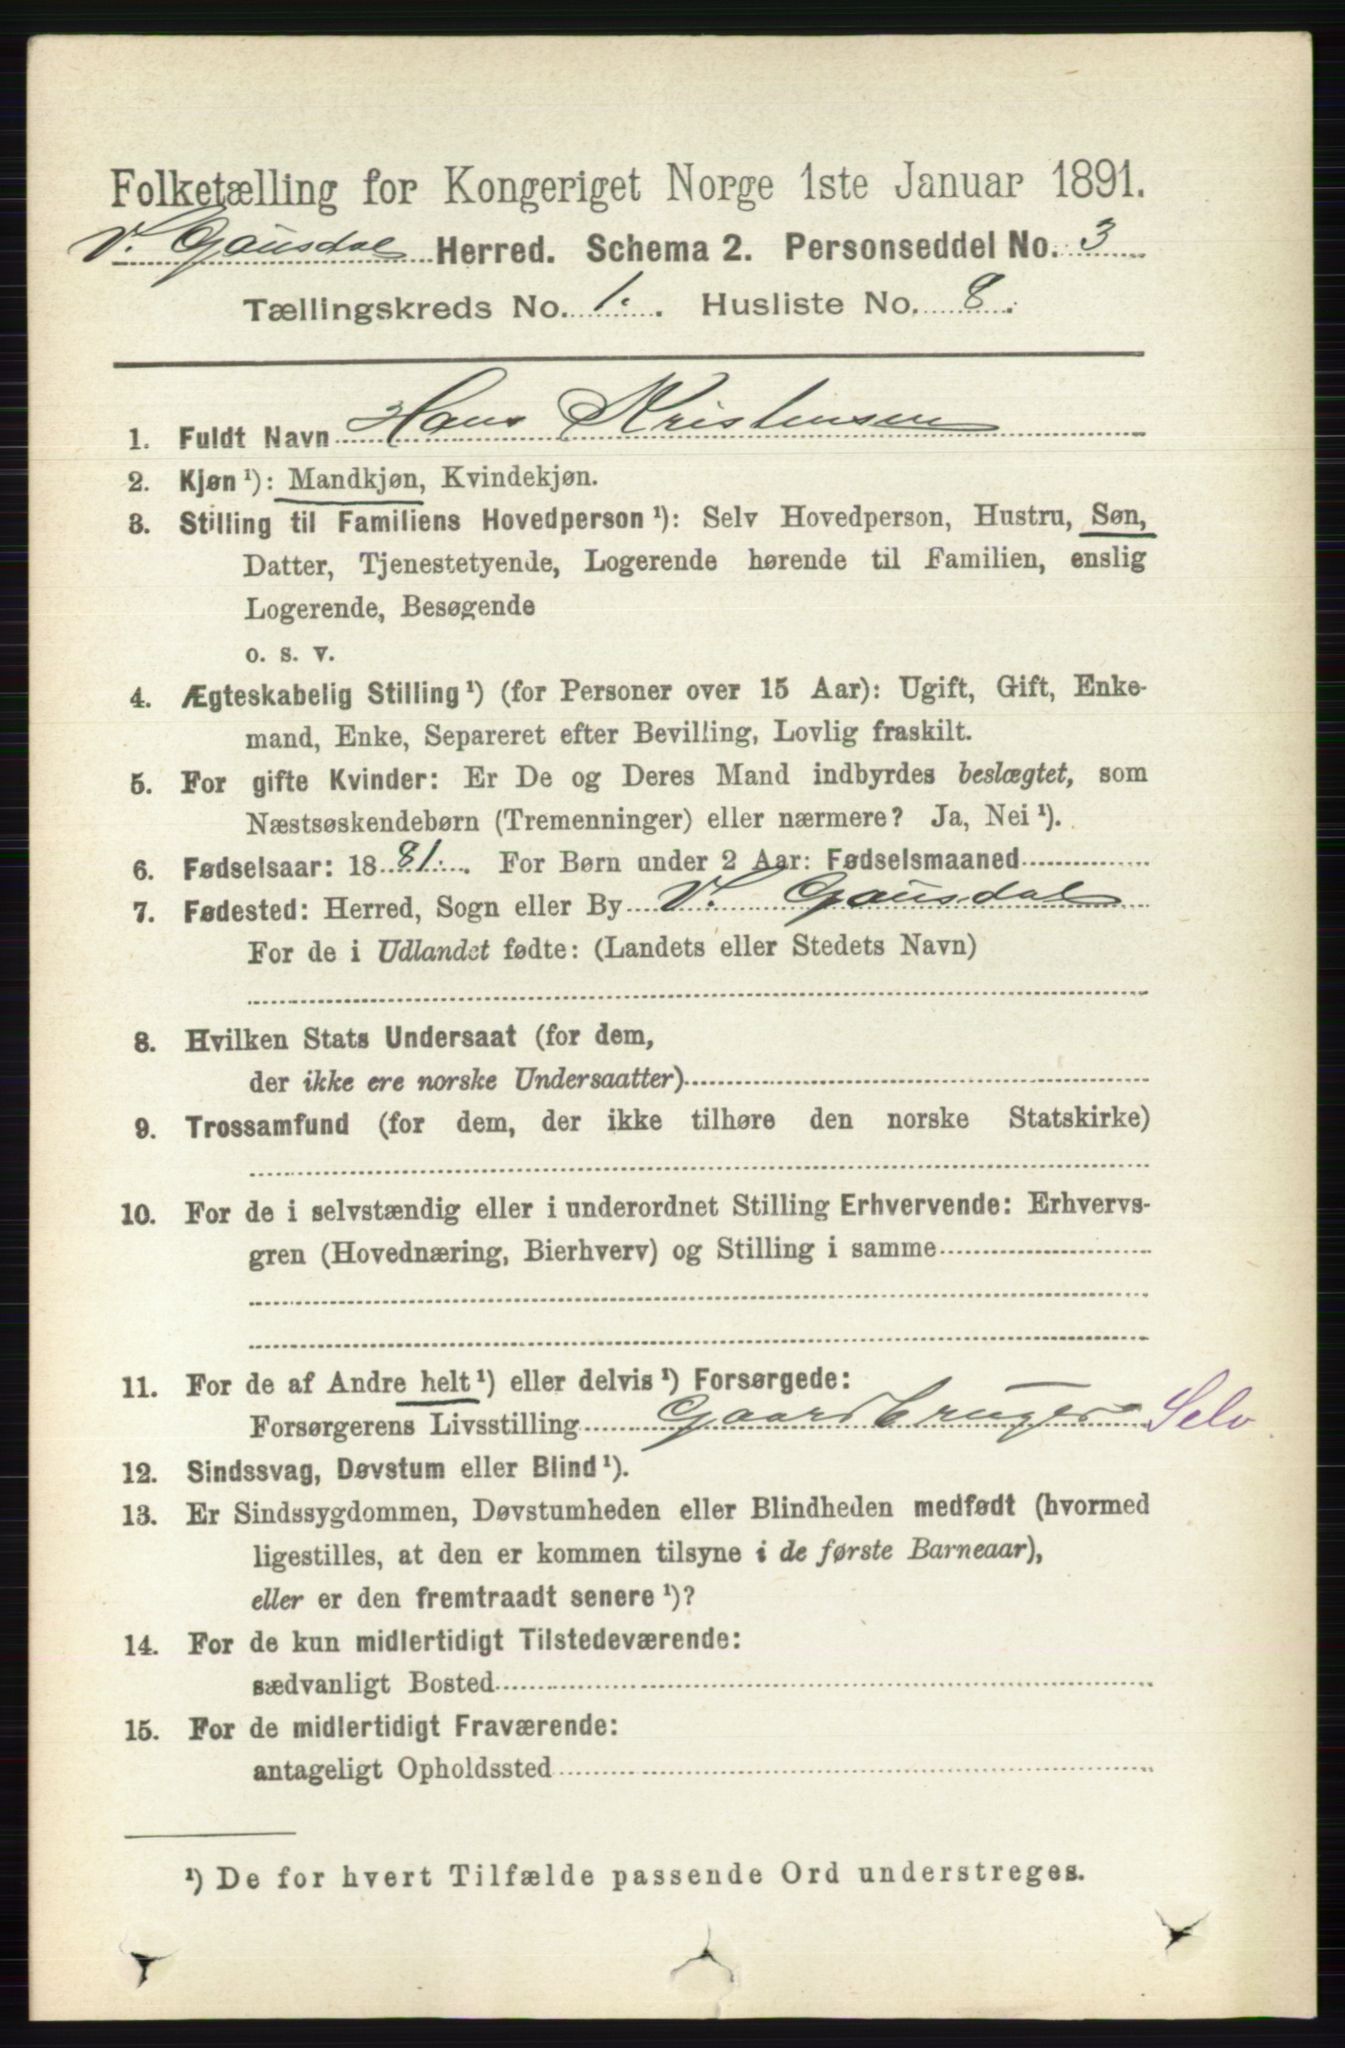 Folketælling for Kongeriget Norge 1ste Januar 1891.
V. Gausdal Herred. Schema 2. Personseddel No. 3
Tællingskreds No. 1. Husliste No. 8.
1. Fuldt Navn Hans Kristensen
2. Kjøn¹): Mandkjøn, Kvindekjøn.
3. Stilling til Familiens Hovedperson¹): Selv Hovedperson, Hustru, Søn,
Datter, Tjenestetyende, Logerende hørende til Familien, enslig
Logerende, Besøgende
o. s. v.
4. Ægteskabelig Stilling¹) (for Personer over 15 Aar): Ugift, Gift, Enke-
mand, Enke, Separeret efter Bevilling, Lovlig fraskilt.
5. For gifte Kvinder: Er De og Deres Mand indbyrdes beslægtet, som
Næstsøskendebørn (Tremenninger) eller nærmere? Ja, Nei¹).
6. Fødselsaar: 1881. For Børn under 2 Aar: Fødselsmaaned
7. Fødested: Herred, Sogn eller By V. Gausdal
For de i Udlandet fødte: (Landets eller Stedets Navn)
8. Hvilken Stats Undersaat (for dem,
der ikke ere norske Undersaatter)
9. Trossamfund (for dem, der ikke tilhøre den norske Statskirke)
10. For de i selvstændig eller i underordnet Stilling Erhvervende: Erhvervs-
gren (Hovednæring, Bierhverv) og Stilling i samme
11. For de af Andre helt¹) eller delvis¹) Forsørgede:
Forsørgerens Livsstilling Gaardbruger Selv
12. Sindssvag, Døvstum eller Blind¹).
13. Er Sindssygdommen, Døvstumheden eller Blindheden medfødt (hvormed
ligestilles, at den er kommen tilsyne i de første Barneaar),
eller er den fremtraadt senere¹)?
14. For de kun midlertidigt Tilstedeværende:
sædvanligt Bosted
15. For de midlertidigt Fraværende:
antageligt Opholdssted
¹) De for hvert Tilfælde passende Ord understreges.